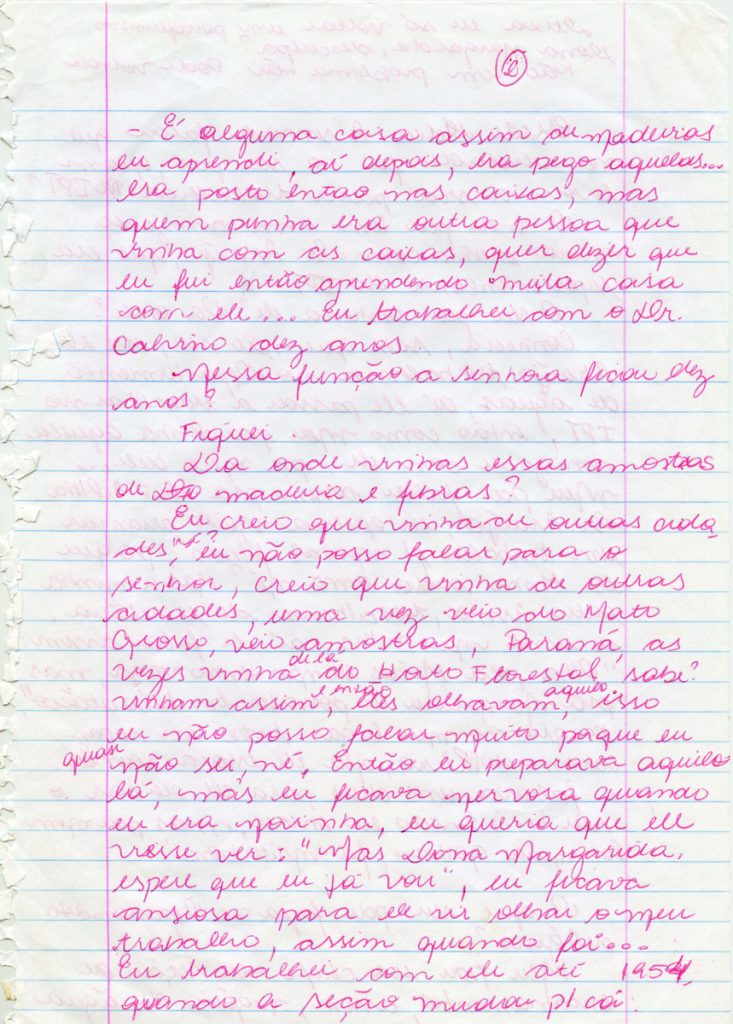 12
- É alguma coisa assim de madeiras
eu aprendi, aí depois, era pego aquelas...
era posto então nas caixas, mas
quem punha era outra pessoa que
vinha com as caixas, quer dizer que
eu fui então aprendendo muita coisa
com ele... Eu trabalhei com o Dr.
Calvino dez anos
Nessa função a senhora ficou dez
anos?
Fiquei.
Da onde vinhas essas amostras
de madeira e fibras?
Eu creio que vinha de outras cida
des, "né?" eu não posso falar para o
senhor, creio que vinha de outras
cidades, uma vez veio do Mato
Grosso, veio amostras, Paraná, as
vezes vinha de lá do Horto Florestal, sabe?
vinham assim, então eles olhavam, aquilo, isso
eu não posso falar muito poque eu
quase não sei, né, Então eu preparava aquilo
lá, mas eu ficava nervosa quando
eu era novinha, eu queria que ele
viesse ver: "Mas Dona Margarida,
espere que eu já vou", eu ficava
ansiosa para ele vir olhar o meu
trabalho, assim quando foi...
Eu trabalhei com ele até 1954,
quando a seção mudou p/ cá.